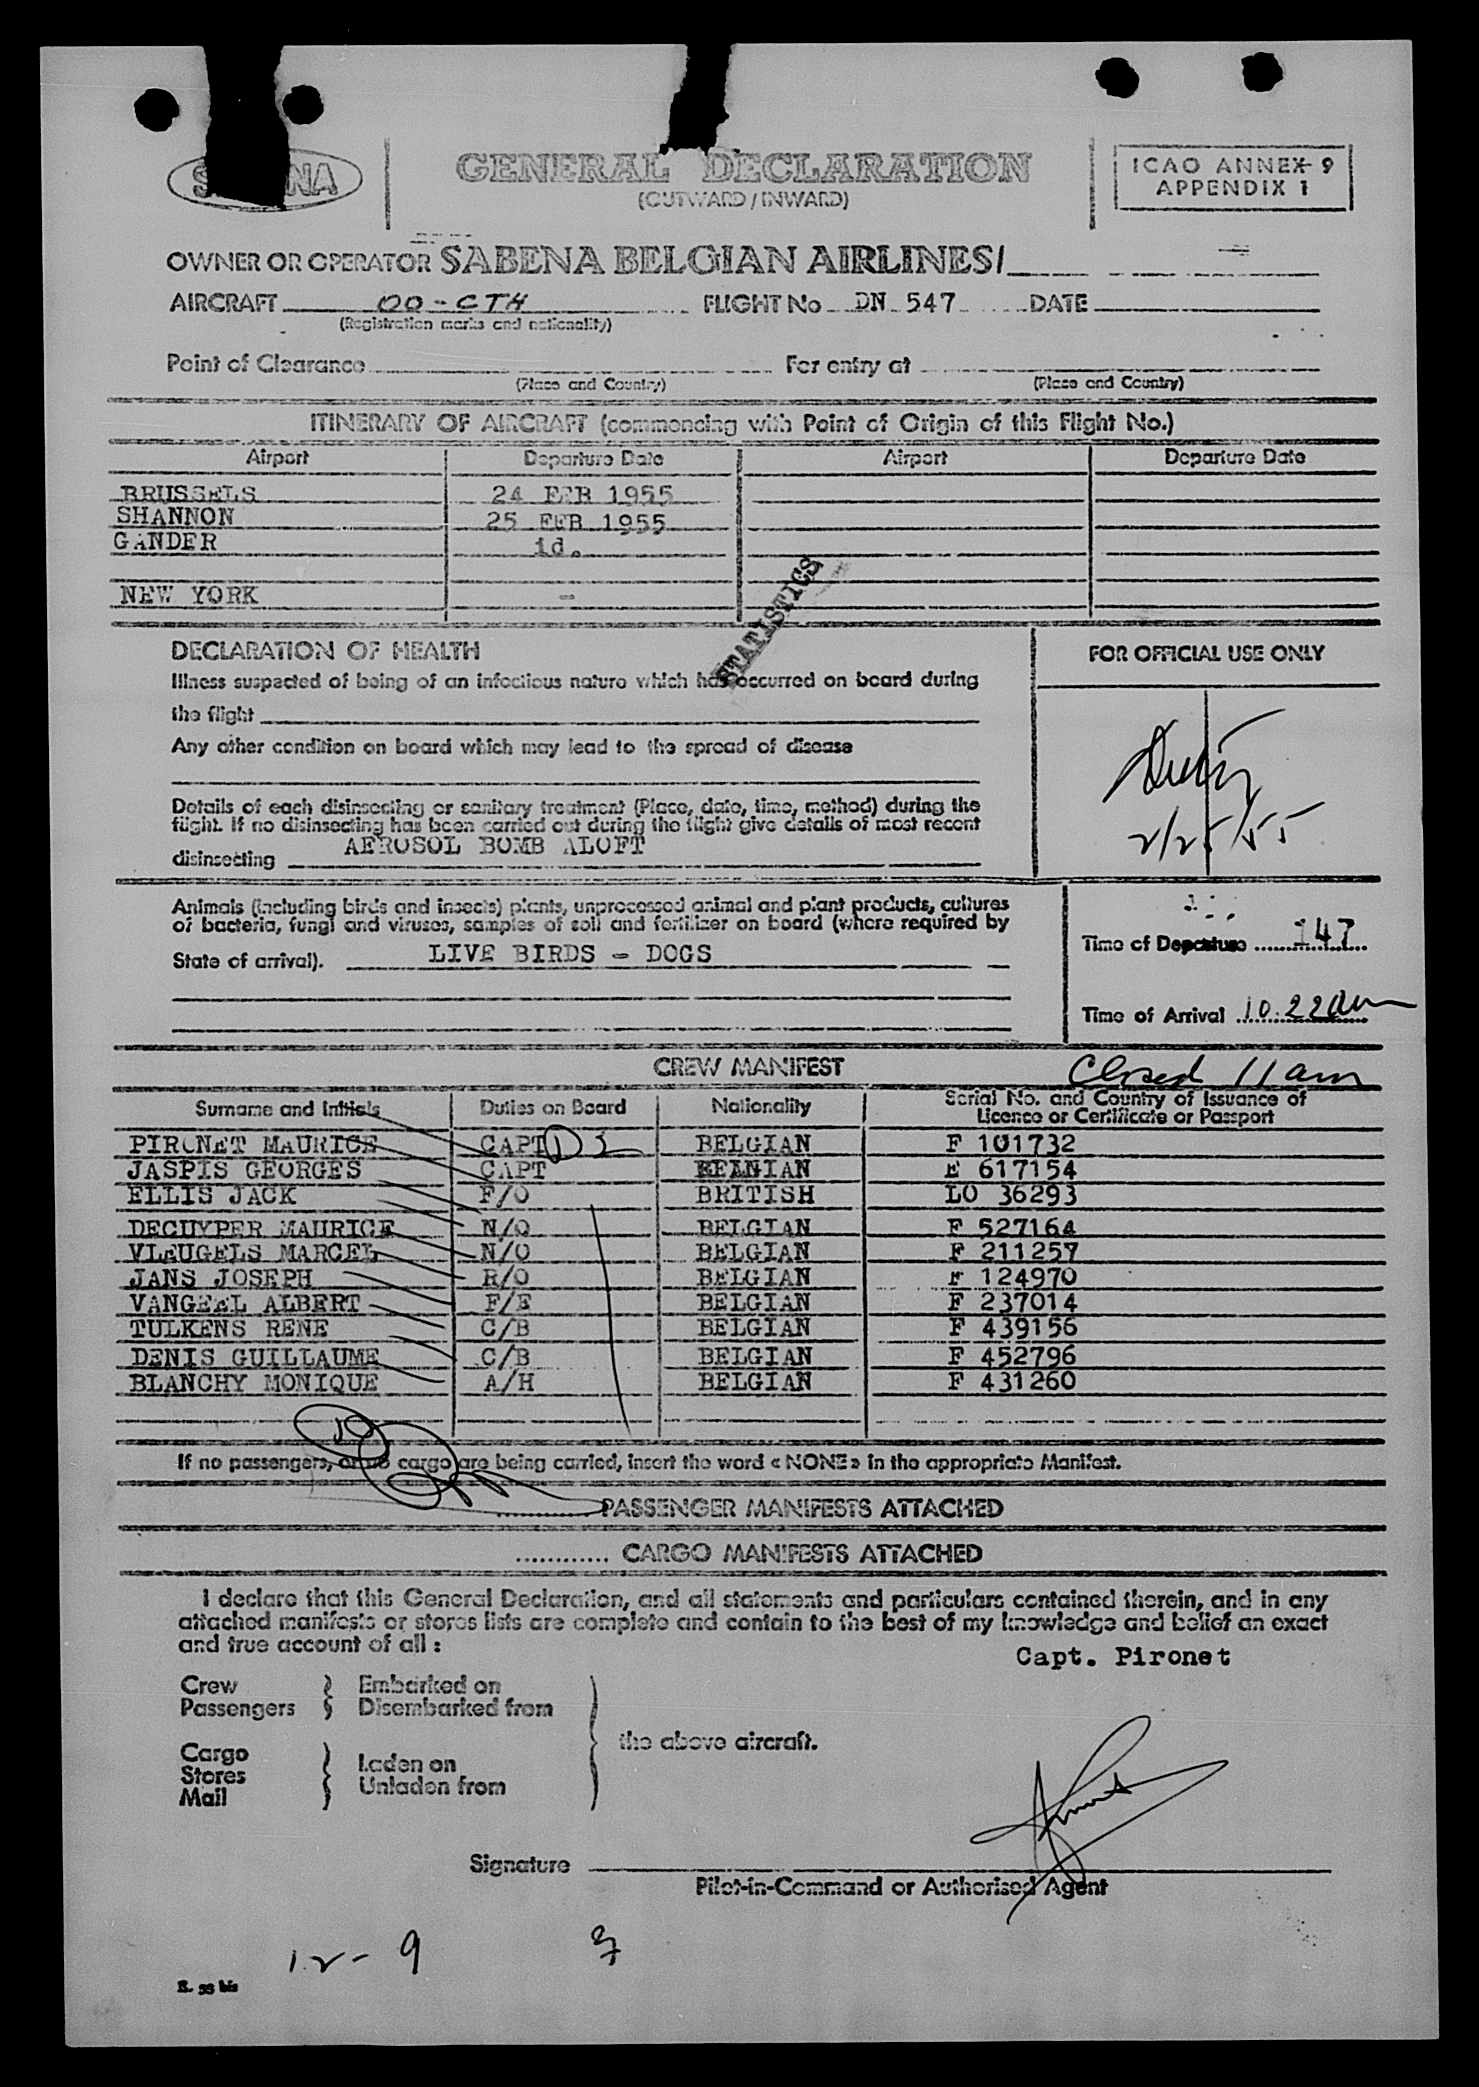 GENERAL DECLARATION
(OUTWARD / INWARD)
ICAO ANNEX 9
APPENDIX 1
OWNER OR OPERATOR SABENA BELGIAN AIRLINES/
AIRCRAFT OO-CTH FLIGHT No DN 547 DATE
(Registration marks and nationality)
Point of Clearance For entry at
(Place and Country) (Place and Country)
ITINERARY OF AIRCRAFT (commencing with Point of Origin of this Flight No.)
Airport Departure Date Airport Departure Date
BRUSSELS 24 FEB 1955
SHANNON 25 FEB 1955
GANDER id.
NEW YORK -
STATISTICS
DECLARATION OF HEALTH
Illness suspected of being of an infectious nature which has occurred on board during
the flight
Any other condition on board which may lead to the spread of disease
Details of each disinsecting or sanitary treatment (Place, date, time, method) during the
flight. If no disinsecting has been carried out during the flight give details of most recent
disinsecting AEROSOL BOMB ALOFT
FOR OFFICIAL USE ONLY
2/25/55
Animals (including birds and insects) plants, unprocessed animal and plant products, cultures
of bacteria, fungi and viruses, samples of soil and fertilizer on board (where required by
State of arrival). LIVE BIRDS - DOGS
Time of Departure 147
Time of Arrival 10.22am
CREW MANIFEST
Closed 11 am
Surname and Initials Duties on Board Nationality Serial No. and Country of Issuance of
Licence or Certificate or Passport
PIRONET MAURICE CAPT BELGIAN F 101732
JASPIS GEORGES CAPT BELGIAN F 617154
ELLIS JACK F/O BRITISH LO 36293
DECUYPER MAURICE N/O BELGIAN F 527164
VLEUGELS MARCEL N/O BELGIAN F 211257
JANS JOSEPH R/O BELGIAN F 124970
VANGEEL ALBERT F/E BELGIAN F 237014
TULKENS RENE C/B BELGIAN F 439156
DENIS GUILLAUME C/B BELGIAN F 452796
BLANCHY MONIQUE A/H BELGIAN F 431260
If no passengers, or no cargo are being carried, insert the word « NONE » in the appropriate Manifest.
............ PASSENGER MANIFESTS ATTACHED
............ CARGO MANIFESTS ATTACHED
I declare that this General Declaration, and all statements and particulars contained therein, and in any
attached manifests or stores lists are complete and contain to the best of my knowledge and belief an exact
and true account of all :
Capt. Pironet
Crew Embarked on
Passengers Disembarked from
the above aircraft.
Cargo
Stores Laden on
Mail Unladen from
Signature
Pilot-in-Command or Authorised Agent
12 - 9
S. 53 bis